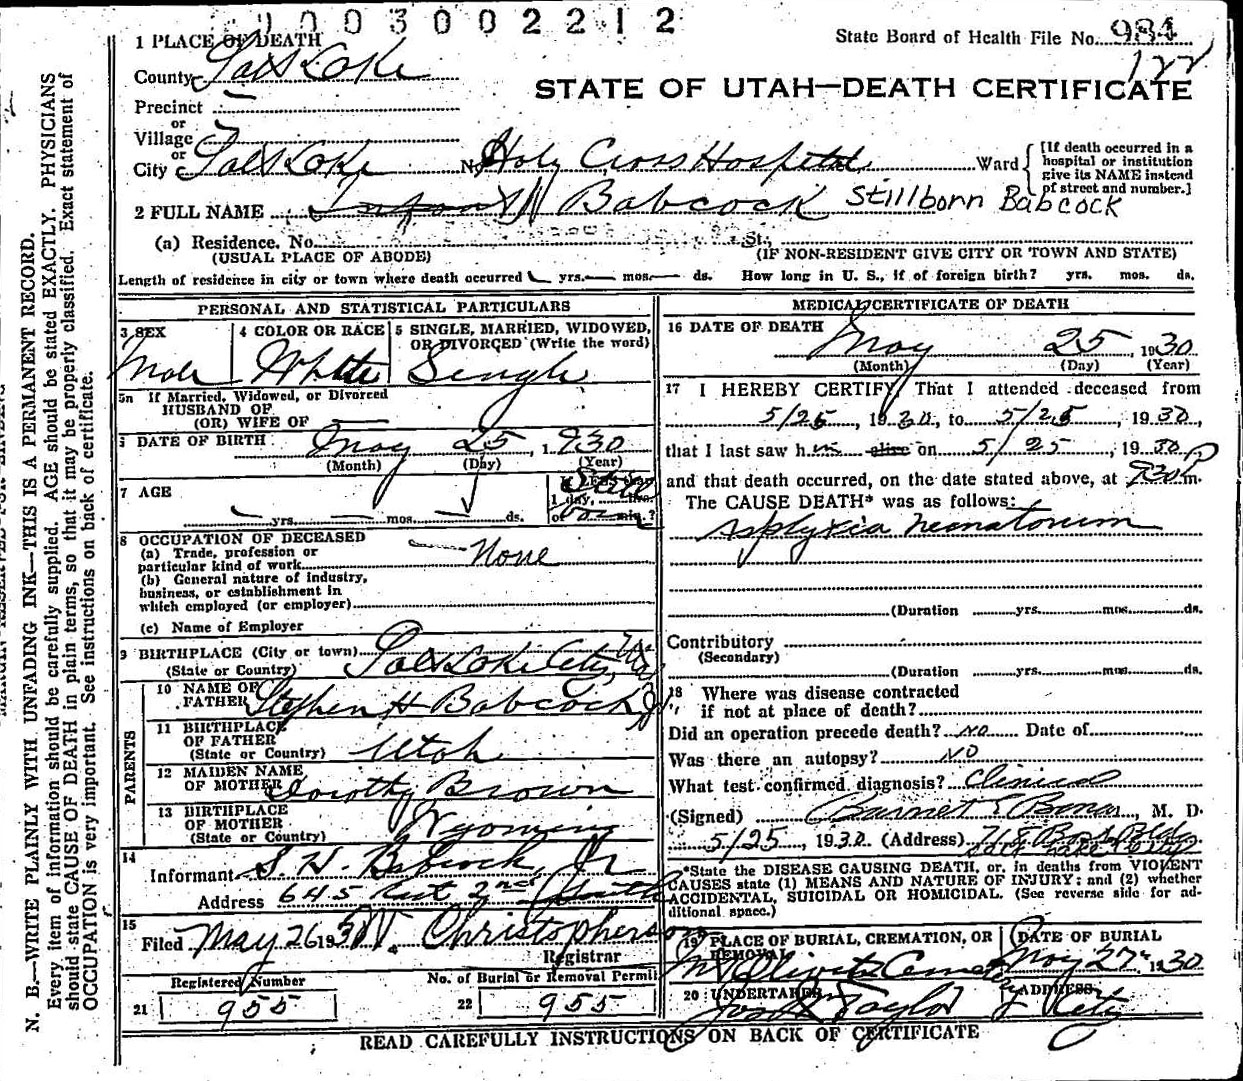 1003002212
State Board of Health File No. 984
122
1 PLACE OF DEATH
County Salt Lake
STATE OF UTAH—DEATH CERTIFICATE
Precinct
or
Village
or
City Salt Lake No. Holy Cross Hospital Ward
[If death occurred in a hospital or institution give its NAME instead of street and number.]
2 FULL NAME Infant Babcock Stillborn Babcock
(a) Residence. No. St.,
(USUAL PLACE OF ABODE) (IF NON-RESIDENT GIVE CITY OR TOWN AND STATE)
Length of residence in city or town where death occurred yrs. mos. ds. How long in U. S., if of foreign birth? yrs. mos. ds.
PERSONAL AND STATISTICAL PARTICULARS
3 SEX 4 COLOR OR RACE 5 SINGLE, MARRIED, WIDOWED, OR DIVORCED (Write the word)
Male White Single
5a If Married, Widowed, or Divorced
HUSBAND OF
(OR) WIFE OF
6 DATE OF BIRTH May 25, 1930
(Month) (Day) (Year)
7 AGE Still born
yrs. mos. ds.
8 OCCUPATION OF DECEASED
(a) Trade, profession or
particular kind of work None
(b) General nature of industry,
business, or establishment in
which employed (or employer)
(c) Name of Employer
9 BIRTHPLACE (City or town) Salt Lake City, Utah
(State or Country)
PARENTS
10 NAME OF FATHER Stephen H Babcock Jr
11 BIRTHPLACE OF FATHER
(State or Country) Utah
12 MAIDEN NAME OF MOTHER Dorothy Brown
13 BIRTHPLACE OF MOTHER
(State or Country) Wyoming
14
Informant S. H. Babcock, Jr
Address 645 East 2nd South
15
Filed May 26 1930 W. Christopherson
Registrar
Registered Number No. of Burial or Removal Permit
21 955 22 955
MEDICAL CERTIFICATE OF DEATH
16 DATE OF DEATH May 25, 1930
(Month) (Day) (Year)
17 I HEREBY CERTIFY, That I attended deceased from
5/25, 1930, to 5/25, 1930,
that I last saw him alive on 5/25, 1930
and that death occurred, on the date stated above, at 930 P m.
The CAUSE DEATH* was as follows:
Asphyxia neonatorum
(Duration yrs. mos. ds.
Contributory
(Secondary)
(Duration yrs. mos. ds.
18 Where was disease contracted
if not at place of death?
Did an operation precede death? No Date of
Was there an autopsy? NO
What test confirmed diagnosis? Clinical
(Signed) M. D.
5/25, 1930 (Address)
*State the DISEASE CAUSING DEATH, or, in deaths from VIOLENT
CAUSES state (1) MEANS AND NATURE OF INJURY; and (2) whether
ACCIDENTAL, SUICIDAL OR HOMICIDAL. (See reverse side for ad-
ditional space.)
19 PLACE OF BURIAL, CREMATION, OR REMOVAL DATE OF BURIAL
Mt Olivet Cemetery May 27th 1930
20 UNDERTAKER ADDRESS
Taylor City
READ CAREFULLY INSTRUCTIONS ON BACK OF CERTIFICATE
N. B.—WRITE PLAINLY WITH UNFADING INK—THIS IS A PERMANENT RECORD.
Every item of information should be carefully supplied. AGE should be stated EXACTLY. PHYSICIANS
should state CAUSE OF DEATH in plain terms, so that it may be properly classified. Exact statement of
OCCUPATION is very important. See instructions on back of certificate.